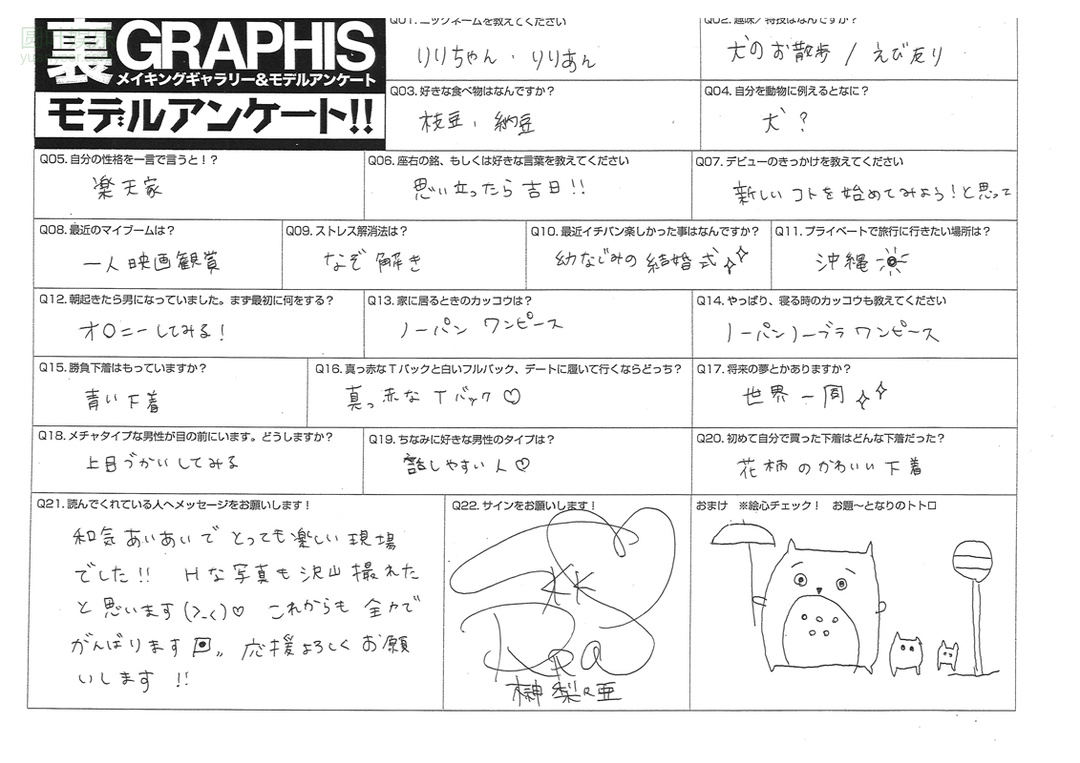 裏GRAPHIS
メイキングギャラリー&モデルアンケート
モデルアンケート!!
Q01. ニックネームを教えてください
りりちゃん・りりあん
Q02. 趣味/特技はなんですか?
犬のお散歩 / えび反り
Q03. 好きな食べ物はなんですか?
枝豆、納豆
Q04. 自分を動物に例えるとなに?
犬?
Q05. 自分の性格を一言で言うと!?
楽天家
Q06. 座右の銘、もしくは好きな言葉を教えてください
思い立ったら吉日!!
Q07. デビューのきっかけを教えてください
新しいコトを始めてみよう!と思って
Q08. 最近のマイブームは?
一人映画観賞
Q09. ストレス解消法は?
なぞ解き
Q10. 最近イチバン楽しかった事はなんですか?
幼なじみの結婚式
Q11. プライベートで旅行に行きたい場所は?
沖縄
Q12. 朝起きたら男になっていました。まず最初に何をする?
オ○ニーしてみる!
Q13. 家に居るときのカッコウは?
ノーパン ワンピース
Q14. やっぱり、寝る時のカッコウも教えてください
ノーパンノーブラワンピース
Q15. 勝負下着はもっていますか?
青い下着
Q16. 真っ赤なTバックと白いフルバック、デートに履いて行くならどっち?
真っ赤なTバック♡
Q17. 将来の夢とかありますか?
世界一周
Q18. メチャタイプな男性が目の前にいます。どうしますか?
上目づかいしてみる
Q19. ちなみに好きな男性のタイプは?
話しやすい人♡
Q20. 初めて自分で買った下着はどんな下着だった?
花柄のかわいい下着
Q21. 読んでくれている人へメッセージをお願いします!
和気あいあいでとっても楽しい現場
でした!! Hな写真も沢山撮れた
と思います(>_<)♡ これからも全力で
がんばります 応援よろしくお願
いします!!
Q22. サインをお願いします!
榊梨々亜
おまけ ※絵心チェック! お題〜となりのトトロ